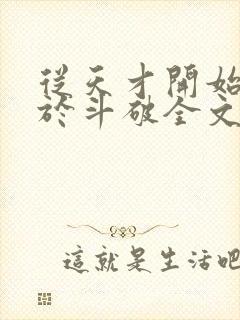 從天才開始
於斗破全文
這就是生活吧